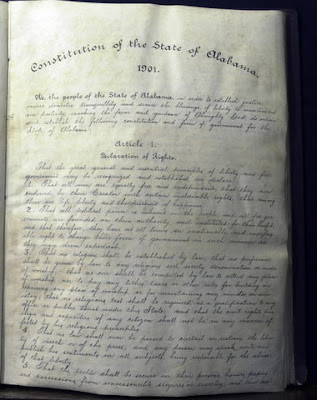 Constitution of the State of Alabama,
1901.
We, the people of the State of Alabama, in order to establish justice,
insure domestic tranquillity and secure the blessings of liberty to ourselves and
our posterity, invoking the favor and guidance of Almighty God, do ordain
and establish the following constitution and form of government for the
State of Alabama:
Article 1.
Declaration of Rights.
That the great, general and essential principles of liberty and free
government may be recognized and established, we declare:
1. That all men are equally free and independent; that they are
endowed by their Creator with certain inalienable rights; that among
these are life, liberty and the pursuit of happiness.
2. That all political power is inherent in the people, and all free
governments are founded on their authority, and instituted for their benefit;
and that, therefore, they have at all times an inalienable and
right to change their form of government in such manner as
they may deem expedient.
3. That no religion shall be established by law; that no preference
shall be given by law to any religious sect, society, denomination or mode
of worship; that no one shall be compelled by law to attend any place
of worship; nor to pay any tithes, taxes or other rate for building or
repairing any place of worship, or for maintaining any minister or
that no religious test shall be required as a qualification to any
office or public trust under this State; and that the civil rights,
privileges and capacities of any citizen shall not be in any manner
affected by his religious principles.
4. That no law shall ever be passed to curtail or restrain the liberty
of speech or of the press; and any person may speak, write and
publish his sentiments on all subjects, being responsible for the abuse
of that liberty.
5. That the people shall be secure in their persons, houses, papers
and possessions from unreasonable seizures or searches, and that no